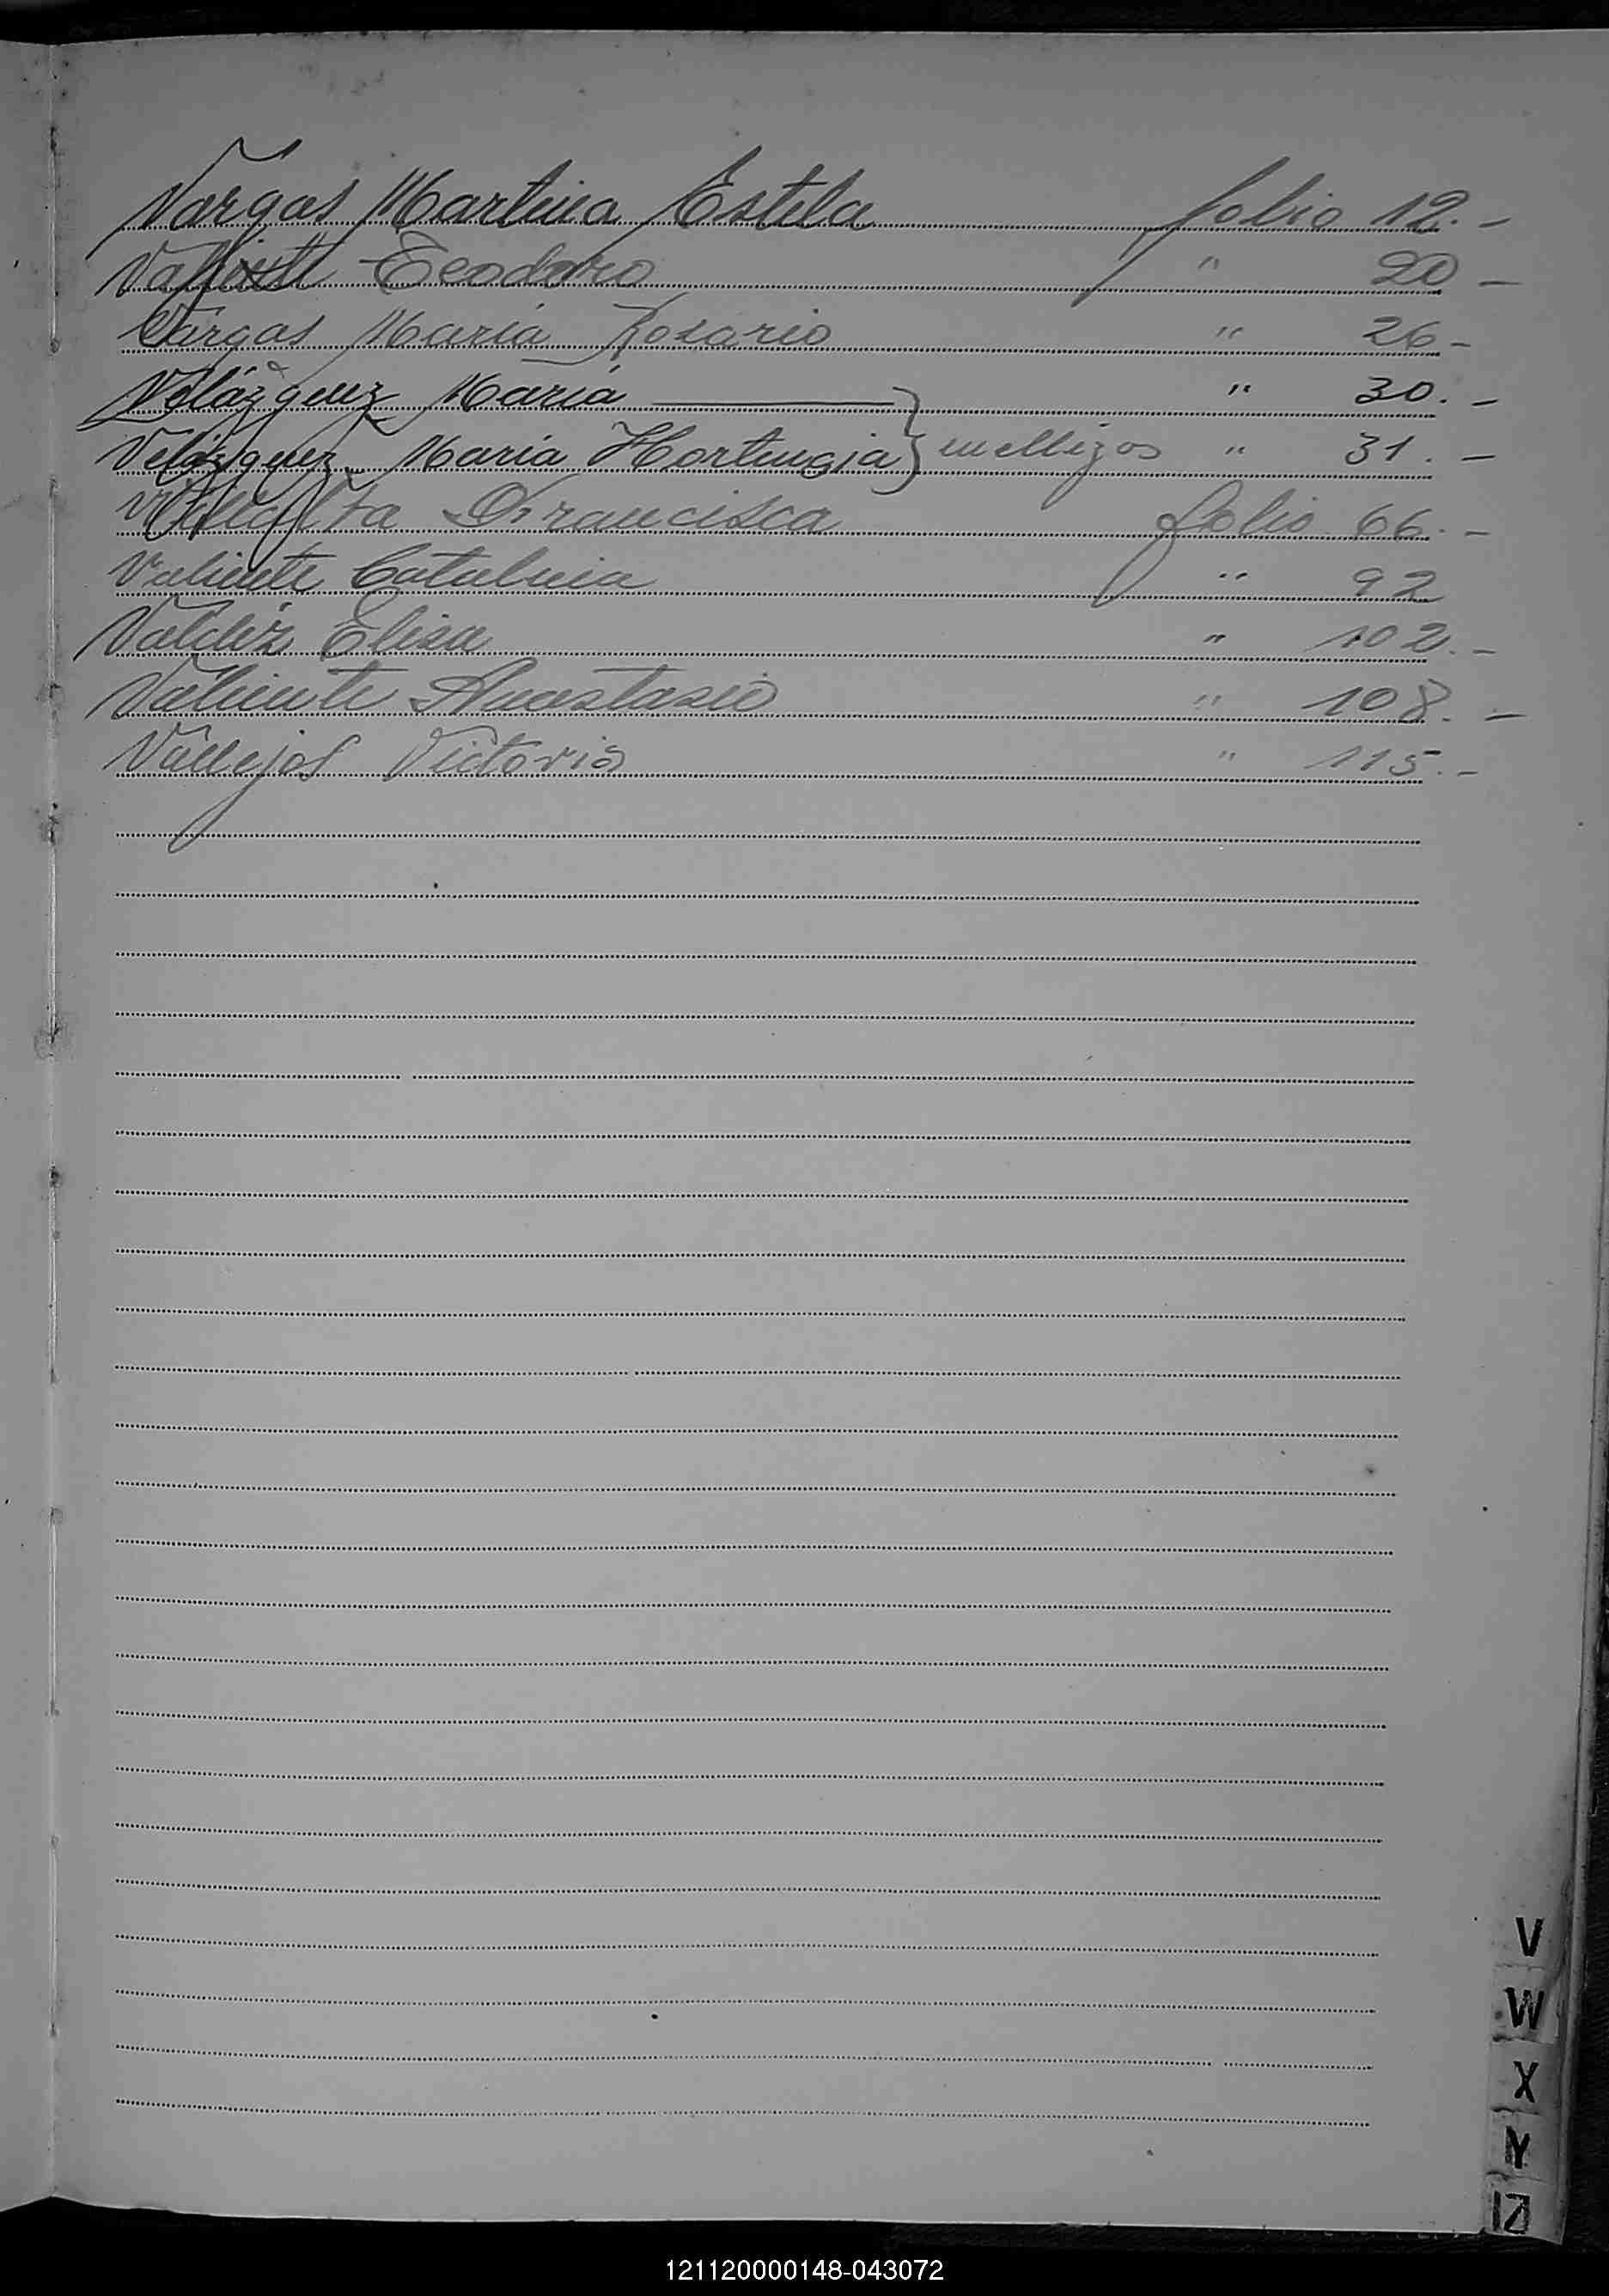 Vargas Martina Estela folio 12.-
Valiente Teodoro " 20 -
Vargas Maria Rosario " 26-
Velázquez María " 30.-
Velázquez María Hortengia } mellizos " 31.-
Francisca folio 66.-
Valiente Catalina " 92
Valdéz Elisa " 102.-
Valiente Anastasio " 108.-
Vallejos Victoria " 115.-
V
W
X
Y
Z
121120000148-043072